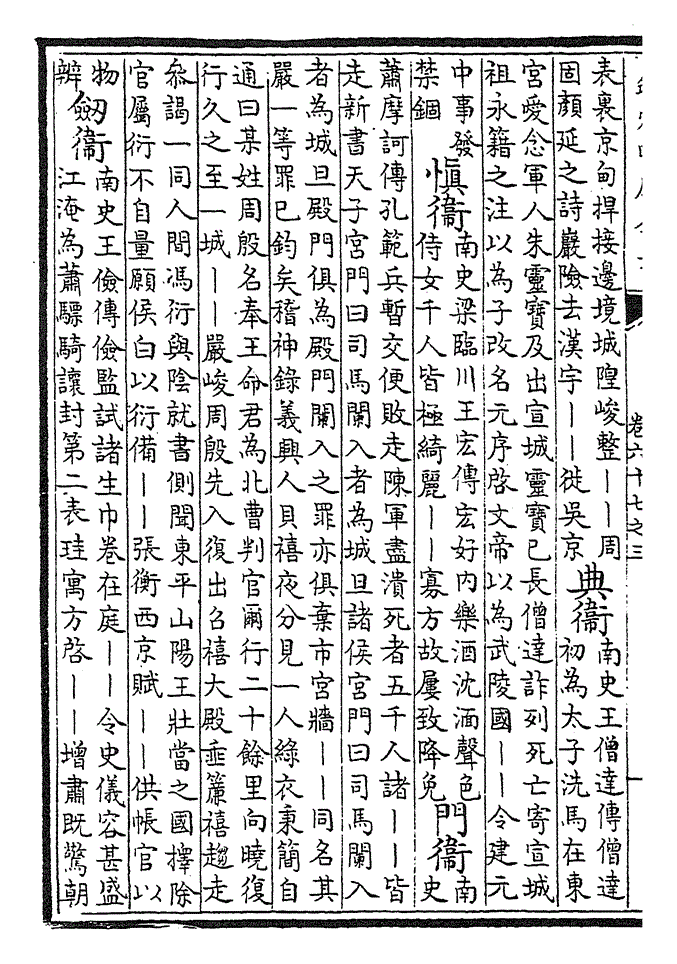 卷六十七之三
表裏京甸捍接邊境城隍峻整——周
固顏延之詩巖險去漢宇——徙吳京
典衞
南史王僧達傳僧達
初為太子洗馬在東
宮愛念軍人朱靈寶及出宣城靈寶已長僧達詐列死亡寄宣城
祖永籍之注以為子改名元序啓文帝以為武陵國——令建元
中事發
禁錮
慎衞
南史梁臨川王宏傳宏好內樂酒沈湎聲色
侍女千人皆極綺麗——寡方故屢致降免
門衞
南
史
蕭摩訶傳孔範兵暫交便敗走陳軍盡潰死者五千人諸——皆
走新書天子宮門曰司馬闌入者為城旦諸侯宮門曰司馬闌入
者為城旦殿門俱為殿門闌入之罪亦俱棄市宮牆——同名其
嚴一等罪已鈞矣稽神錄義興人貝禧夜分見一人綠衣秉簡自
通曰某姓周殷名奉王命君為北曹判官爾行二十餘里向曉復
行久之至一城——嚴峻周殷先入復出召禧大殿垂簾禧趨走
叅謁一同人間馮衍與陰就書側聞東平山陽王壯當之國擇除
官屬衍不自量願侯白以衍備——張衡西京賦——供帳官以
物
辨
劒衞
南史王儉傳儉監試諸生巾卷在庭——令史儀容甚盛
江淹為蕭驃騎讓封第二表珪寓方啓——增肅既驚朝